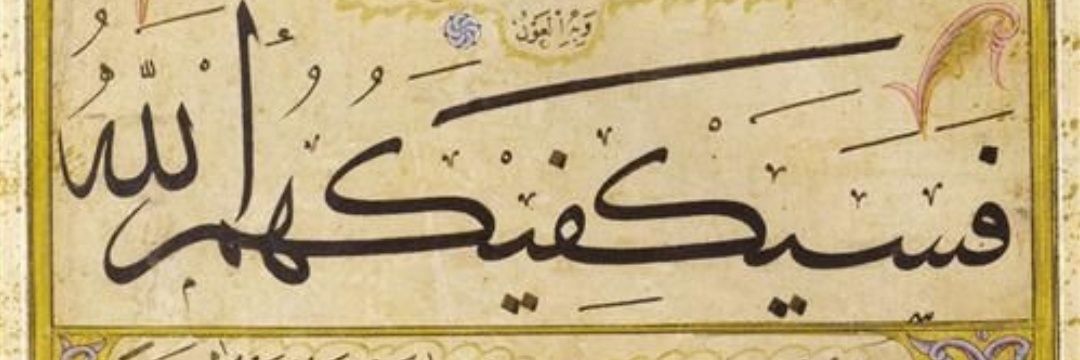 وبه العون
فسيكفيكهم الله